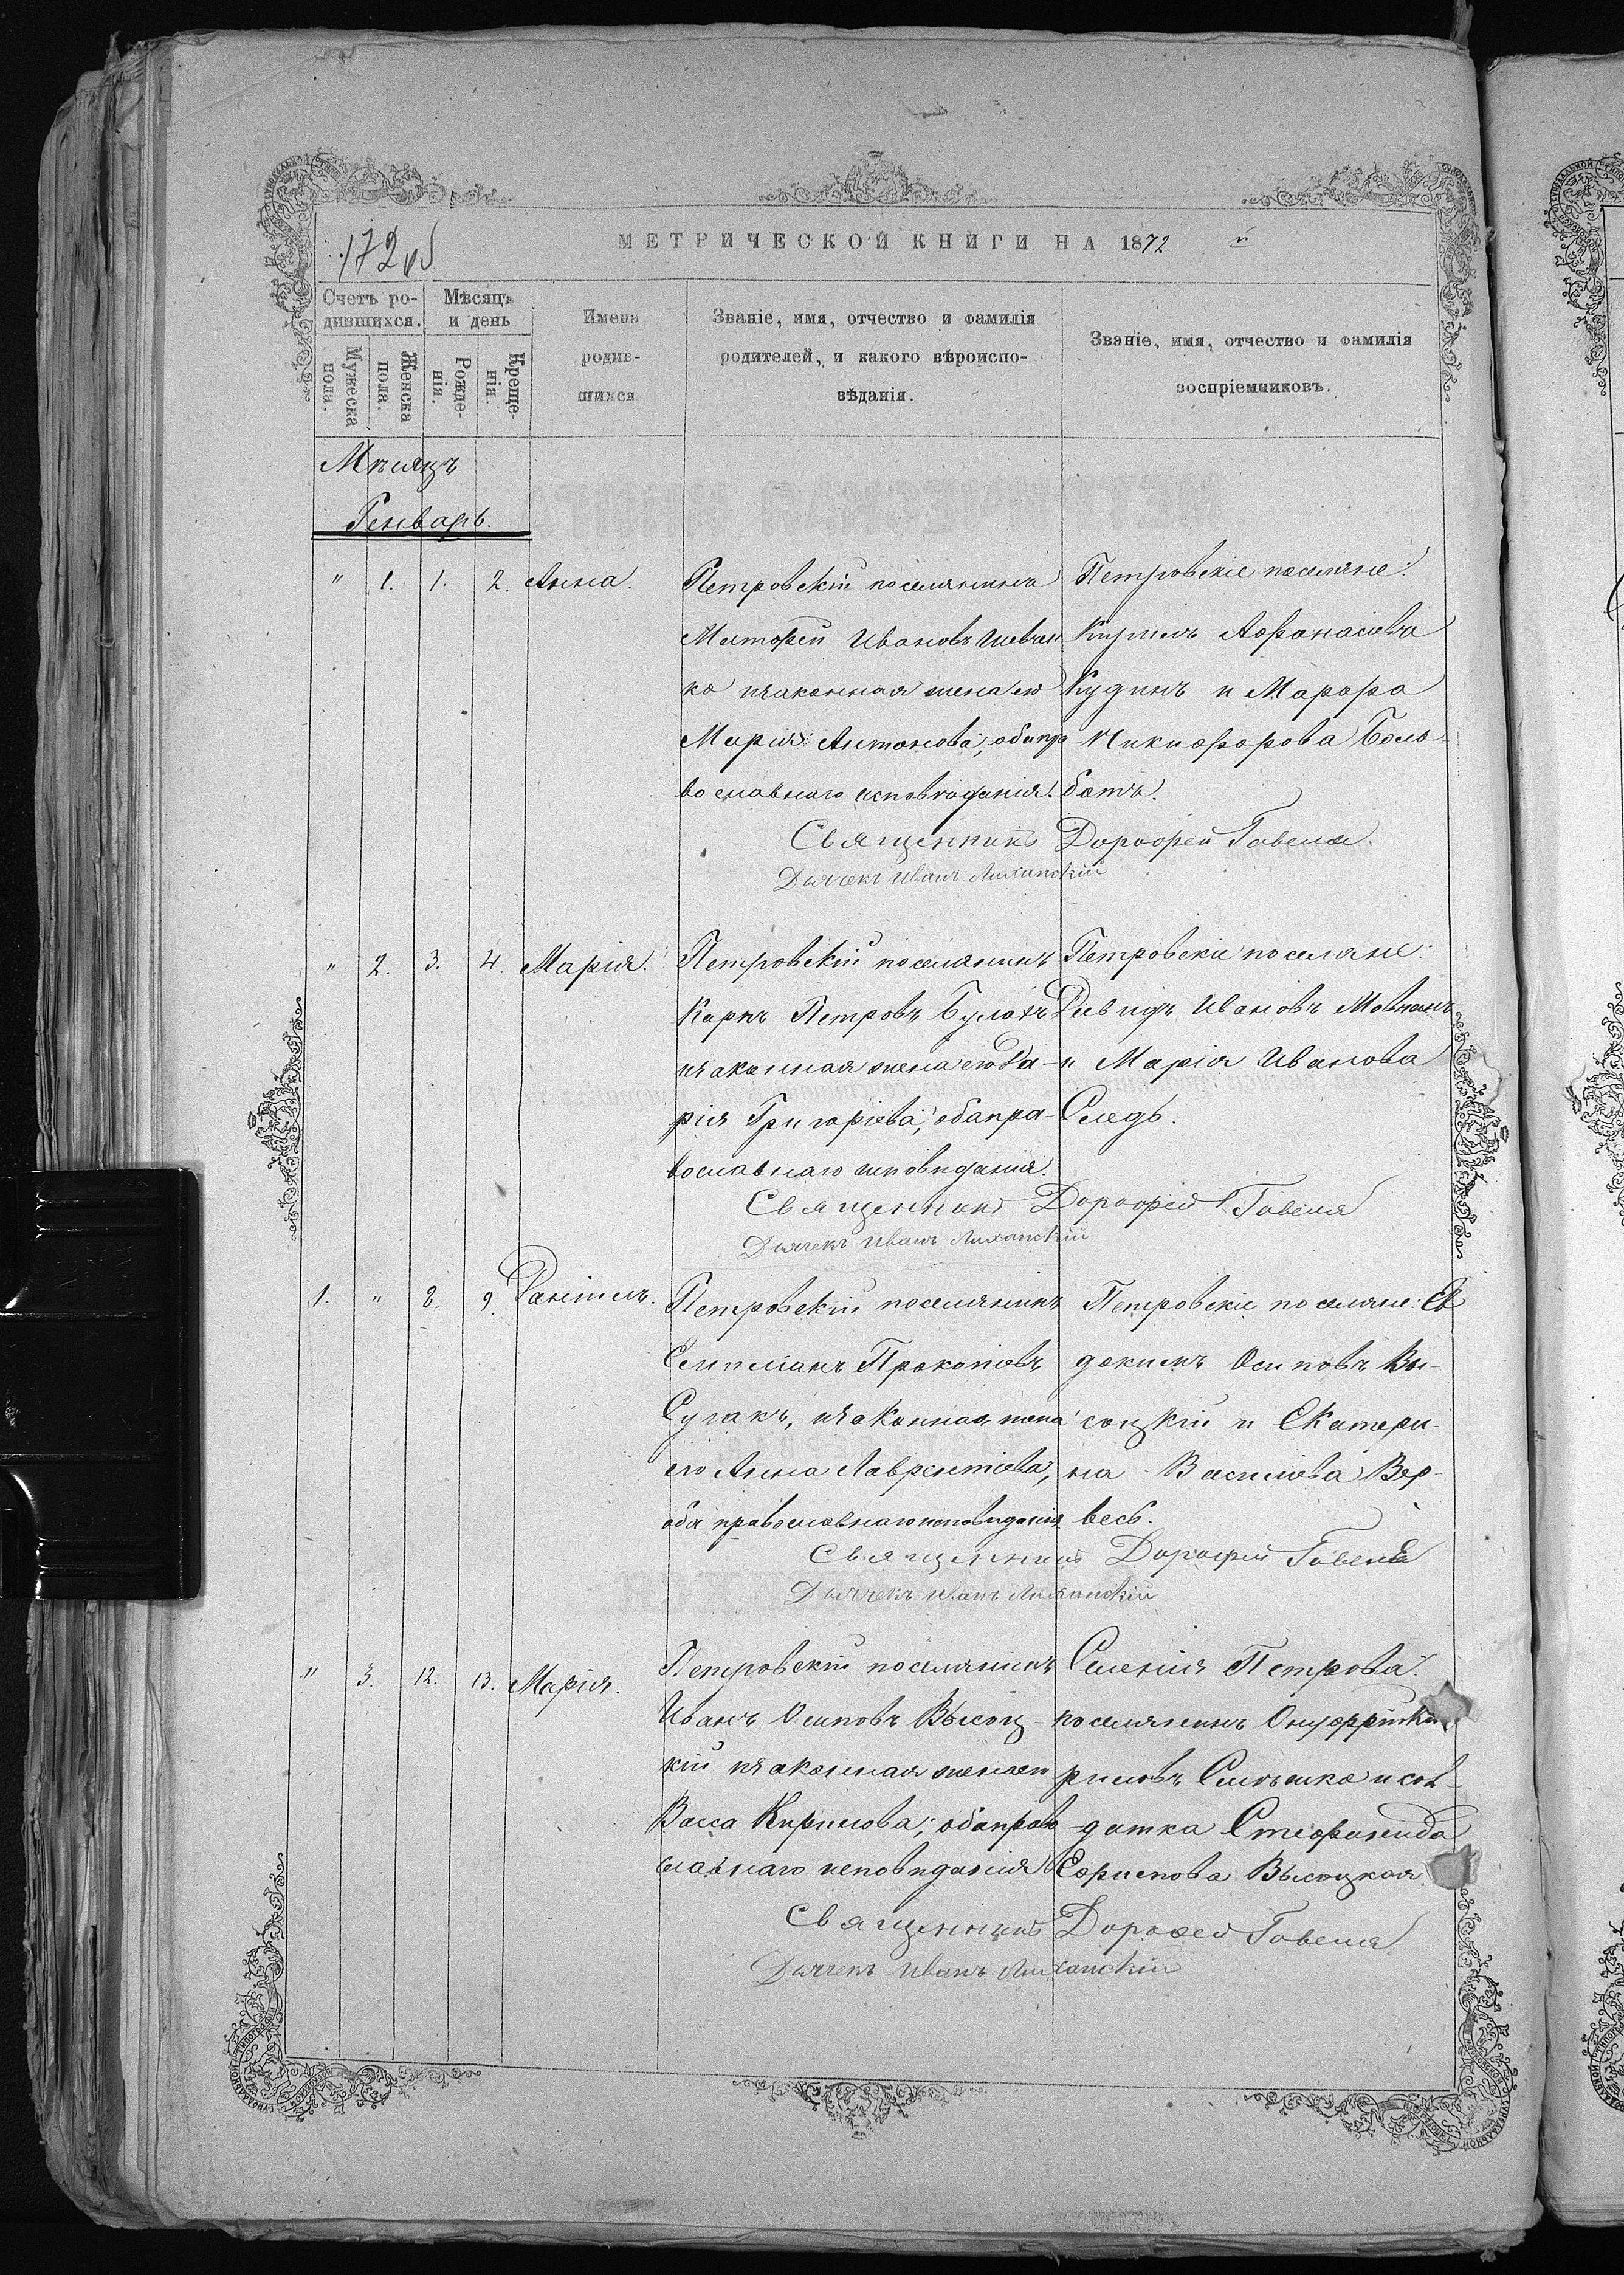 МЕТРИЧЕСКОЙ КНИГИ НА 1872 й
172 об
Счетъ ро-
дившихся.
Мужеска
пола.
Женска
пола.
Мѣсяцъ
и день
Рожде-
нія.
Креще-
нія.
Имена
родив-
шихся.
Званіе, имя, отчество и фамилія
родителей, и какого вѣроиспо-
вѣданія.
Званіе, имя, отчество и фамилія
воспріемниковъ.
Мѣсяцъ
Генварь.
" 1. 1. 2. Анна.
Петровскій поселянинъ
Матфей Ивановъ Шевчен
ко изаконная жена его
Марія Антонова, оба пра
вославнаго исповѣданія.
Петровскіе поселяне:
Кирилъ Афонасіевъ
Кудинъ и Марфа
Никифорова Боль-
батъ.
Священникъ Дорофей Говеля.
Дьячекъ Иванъ Лиханскій
" 2. 3. 4. Марія.
Петровскій поселянинъ
Карпъ Петровъ Булахъ
изаконная жена его Да-
рія Григоріева, оба пра-
вославнаго исповиданія.
Петровскіе поселяне:
Давидъ Ивановъ Мовчанъ
и Марія Иванова
Следь.
Священникъ Дорофей Говеля
Дьячекъ Иванъ Лиханскій
1. " 8. 9. Даніилъ.
Петровскій поселянинъ
Емиліанъ Прокопіевъ
Сугакъ, изаконная жена
его Анна Лаврентіева,
оба православнаго исповиданія
Петровскіе поселяне: Ев
докимъ Осиповъ Вы-
соцкій и Екатери-
на Василіева Вер-
весь.
Священникъ Дорофей Говеля
Дьячекъ Иванъ Лиханскій
" 3. 12. 13. Марія.
Петровскій поселянинъ
Иванъ Осиповъ Высоц-
кій изаконная жена его
Васса Кирилова; оба право
славнаго исповиданія
Селенія Петрова:
поселянинъ Онуфрій Ки
риловъ и сол-
датка Стефанида
Высоцкая.
Священникъ Дорофей Говеля
Дьячекъ Иванъ Лиханскій